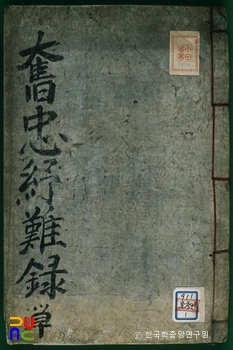 奮忠紓難錄 單
ⓒ한국학중앙연구원